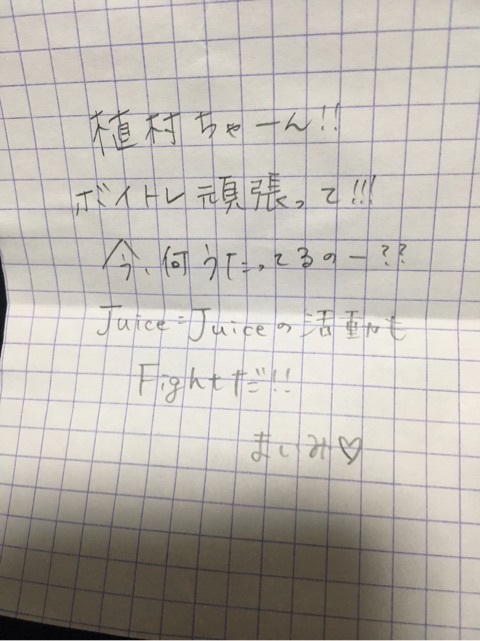 植村ちゃーん!!
ボイトレ頑張って!!!
今、何うたってるのー??
Juice=Juiceの活動も
Fightだ!!
まいみ♡